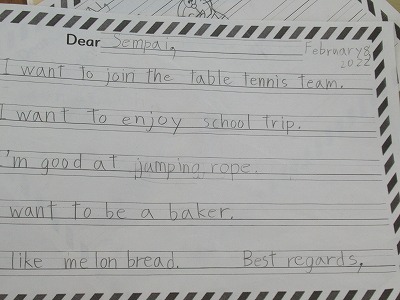 Dear Sempai,
February 8,
2022
I want to join the table tennis team.
I want to enjoy school trip.
I'm good at jumping rope.
want to be a baker.
like melon bread. Best regards,